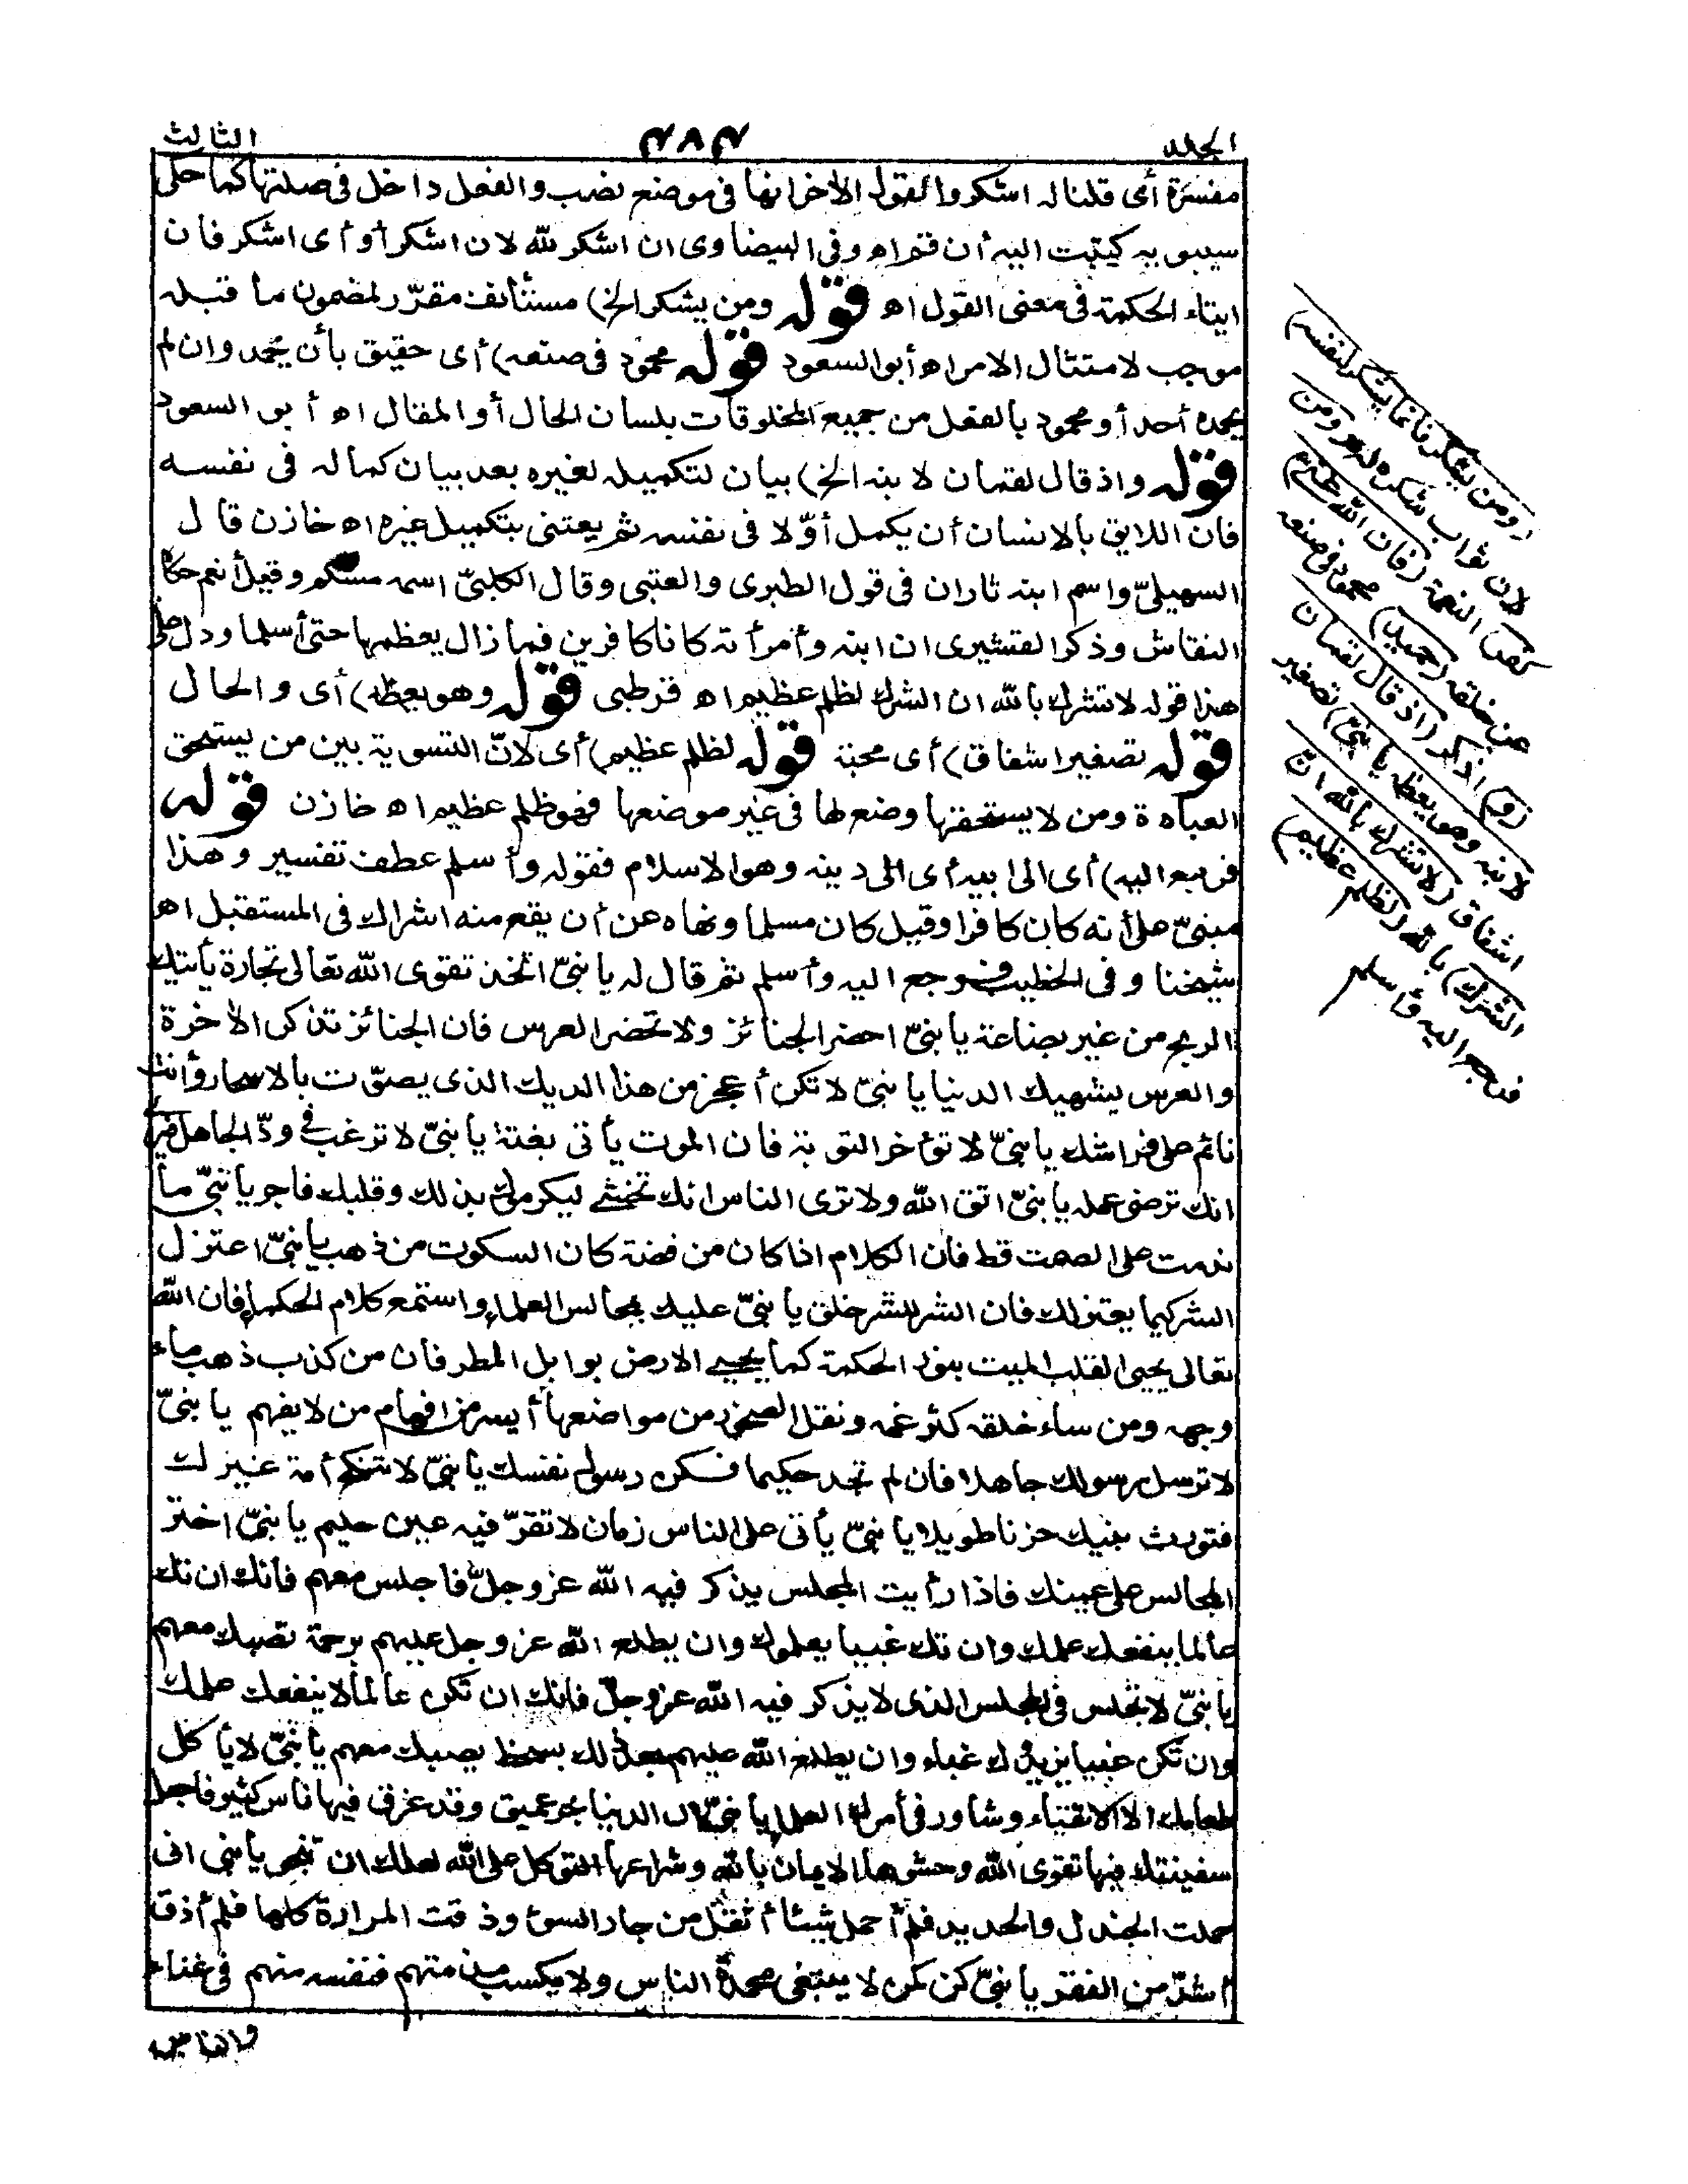 الجلد
٤٨٤
الثالث
مفسرة أى قلنا له اشكر والقول الأخر انها فى موضع نصب والفعل داخل فى صلتها كما حكى
سيبويه كتبت اليه أن قم اه وفى البيضاوى ان اشكر لله لان اشكر أو أى اشكر فان
ايتاء الحكمة فى معنى القول اه قوله ومن يشكر الخ) مستأنف مقرّر لمضمون ما قبله
موجب لامتثال الامر اه أبو السعود قوله محمود فى صنعه) أى حقيق بأن يحمد وان لم
يحمده أحد أو محمود بالفعل من جميع المخلوقات بلسان الحال أو المقال اه أبو السعود
قوله واذ قال لقمان لابنه الخ) بيان لتكميله لغيره بعد بيان كماله فى نفسه
فان اللايق بالانسان أن يكمل أوّلا فى نفسه ثم يعتنى بتكميل غيره اه خازن قال
السهيلىّ واسم ابنه ثاران فى قول الطبرى والعتبى وقال الكلبىّ اسمه مشكم وقيل أنعم حكاه
النقاش وذكر القشيرى ان ابنه وأمرأته كانا كافرين فما زال يعظهما حتى أسلما ودل على
هذا قوله لا تشرك بالله ان الشرك لظلم عظيم اه قرطبى قوله وهو يعظه) أى والحال
قوله تصغير اشفاق) أى محبة قوله لظلم عظيم) أى لانّ التسوية بين من يستحق
العبادة ومن لا يستحقها وضع لها فى غير موضعها فهو ظلم عظيم اه خازن قوله
فرجع اليه) أى الى ابيه أى الى دينه وهو الاسلام فقوله وأسلم عطف تفسير وهذا
مبنىّ على أنه كان كافرا وقيل كان مسلما ونهاه عن أن يقع منه اشراك فى المستقبل اه
شيخنا وفى الخطيب فرجع اليه وأسلم ثم قال له يا بنىّ اتخذ تقوى الله تعالى تجارة يأتيك
الربح من غير بضاعة يا بنىّ احضر الجنائز ولا تحضر العرس فان الجنائز تذكر الأخرة
والعرس يشهيك الدنيا يا بنىّ لا تكن أعجز من هذا الديك الذى يصوّت بالاسحار وأنت
نائم على فراشك يا بنىّ لا تؤخر التوبة فان الموت يأتى بغتة يا بنىّ لا ترغب فى ودّ الجاهل فيرى
انك ترضى عمله يا بنىّ اتق الله ولا ترى الناس انك تخشى ليكرموك بذلك وقلبك فاجر يا بنىّ ما
ندمت على الصمت قط فان الكلام اذا كان من فضة كان السكوت من ذهب يا بنىّ اعتزل
الشر كيما يعتزلك فان الشر للشر خلق يا بنىّ عليك بمجالس العلماء واستمع كلام الحكماء فان الله
تعالى يحيى القلب الميت بنور الحكمة كما يحيى الارض بوابل المطر فان من كذب ذهب ماء
وجهه ومن ساء خلقه كثر غمه ونقل الصخور من مواضعها أيسر من افهام من لا يفهم يا بنىّ
لا ترسل رسولك جاهلا فان لم تجد حكيما فكن رسول نفسك يا بنىّ لا تنكح أمة غيرك
فتورث بنيك حزنا طويلا يا بنىّ يأتى على الناس زمان لا تقرّ فيه عين حليم يا بنىّ اختر
المجالس على عينك فاذا رأيت المجلس يذكر فيه الله عز وجلّ فاجلس معهم فانك ان تك
عالما ينفعك علمك وان تك غبيا يعلموك وان يطلع الله عز وجل عليهم برحمة تصبك معهم
يا بنىّ لا تجلس فى المجلس الذى لا يذكر فيه الله عز وجلّ فانك ان تكن عالما لا ينفعك علمك
وان تكن غبيا يزيدوك غباء وان يطلع الله عليهم بعد ذلك بسخط يصبك معهم يا بنىّ لا يأكل
طعامك الا الاتقياء وشاور فى أمرك العلماء يا بنىّ ان الدنيا بحر عميق وقد غرق فيها ناس كثير فاجعل
سفينتك فيها تقوى الله وحشوها الايمان بالله وشراعها التوكل على الله لعلك ان تنجو يا بنى انى
حملت الجندل والحديد فلم أحمل شيئا أثقل من جار السوء وذقت المرارة كلها فلم أذق
أشدّ من الفقر يا بنىّ كن كمن لا يبتغى محمدة الناس ولا يكسب مذمتهم فنفسه منهم فى غناء
والناس
(ومن يشكر فانما يشكر لنفسه)
لان ثواب شكره له (ومن
كفر) النعمة (فان الله غنى)
عن خلقه (حميد) محمود فى صنعه
(و) اذكر (اذ قال لقمان
لابنه وهو يعظه يا بنىّ) تصغير
اشفاق (لا تشرك بالله انّ
الشرك) بالله (لظلم عظيم)
فرجع اليه وأسلم